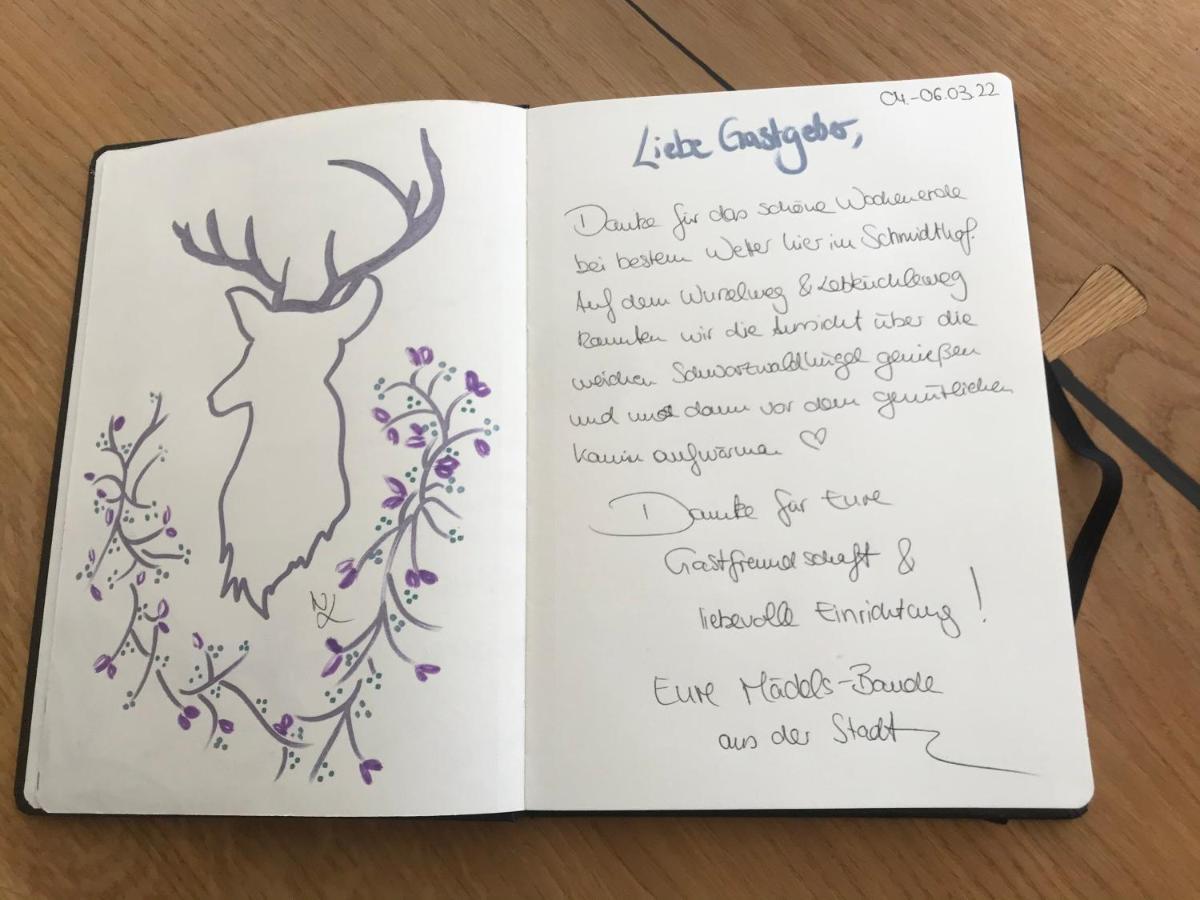 NL
04.-06.03.22
Liebe Gastgeber,
Danke für das schöne Wochenende
bei bestem Wetter hier im Schmidthof.
Auf dem Wurzelweg & Lebküchleweg
konnten wir die Aussicht über die
weichen Schwarzwaldhügel genießen
und uns dann vor dem gemütlichen
Kamin aufwärmen ♡
Danke für Eure
Gastfreundschaft &
liebevolle Einrichtung!
Eure Mädels-Bande
aus der Stadt